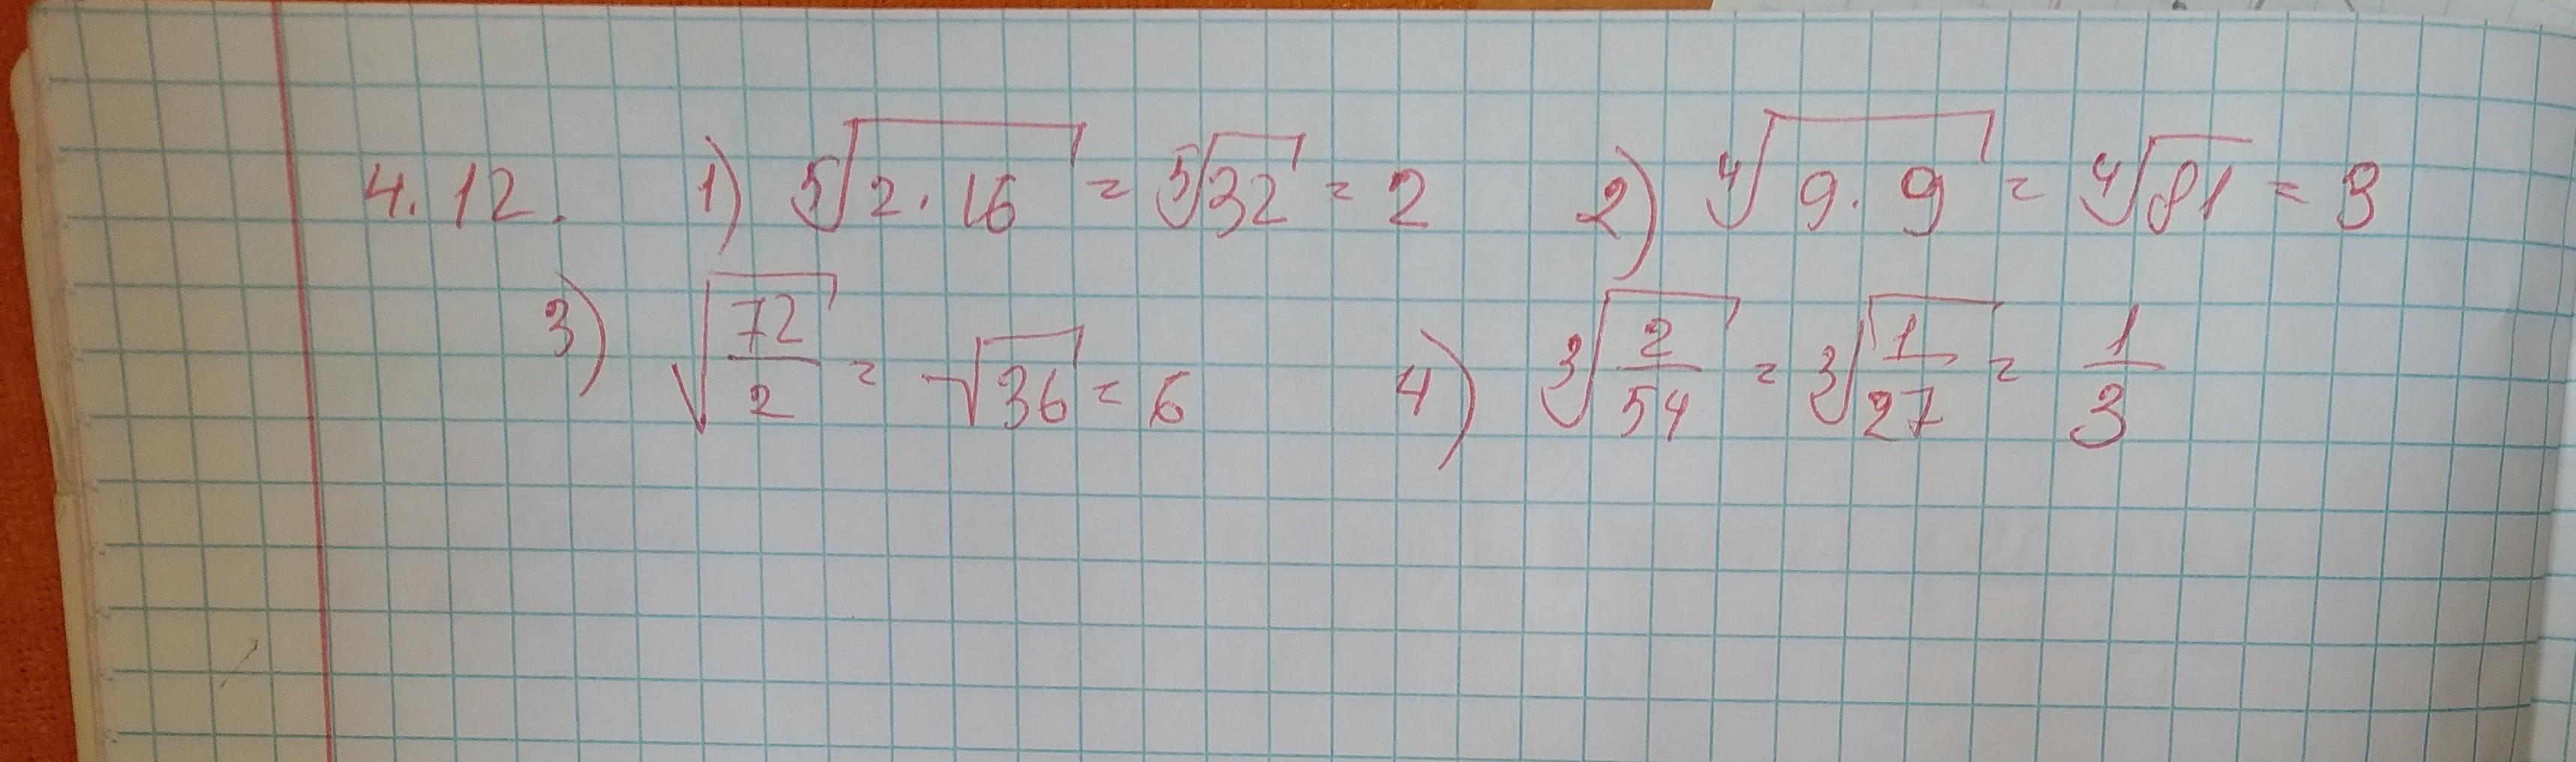 4.12. 1) ⁵√(2·16) = ⁵√32 = 2 2) ⁴√(9·9) = ⁴√81 = 3
3) √(72/2) = √36 = 6 4) ³√(2/54) = ³√(1/27) = 1/3